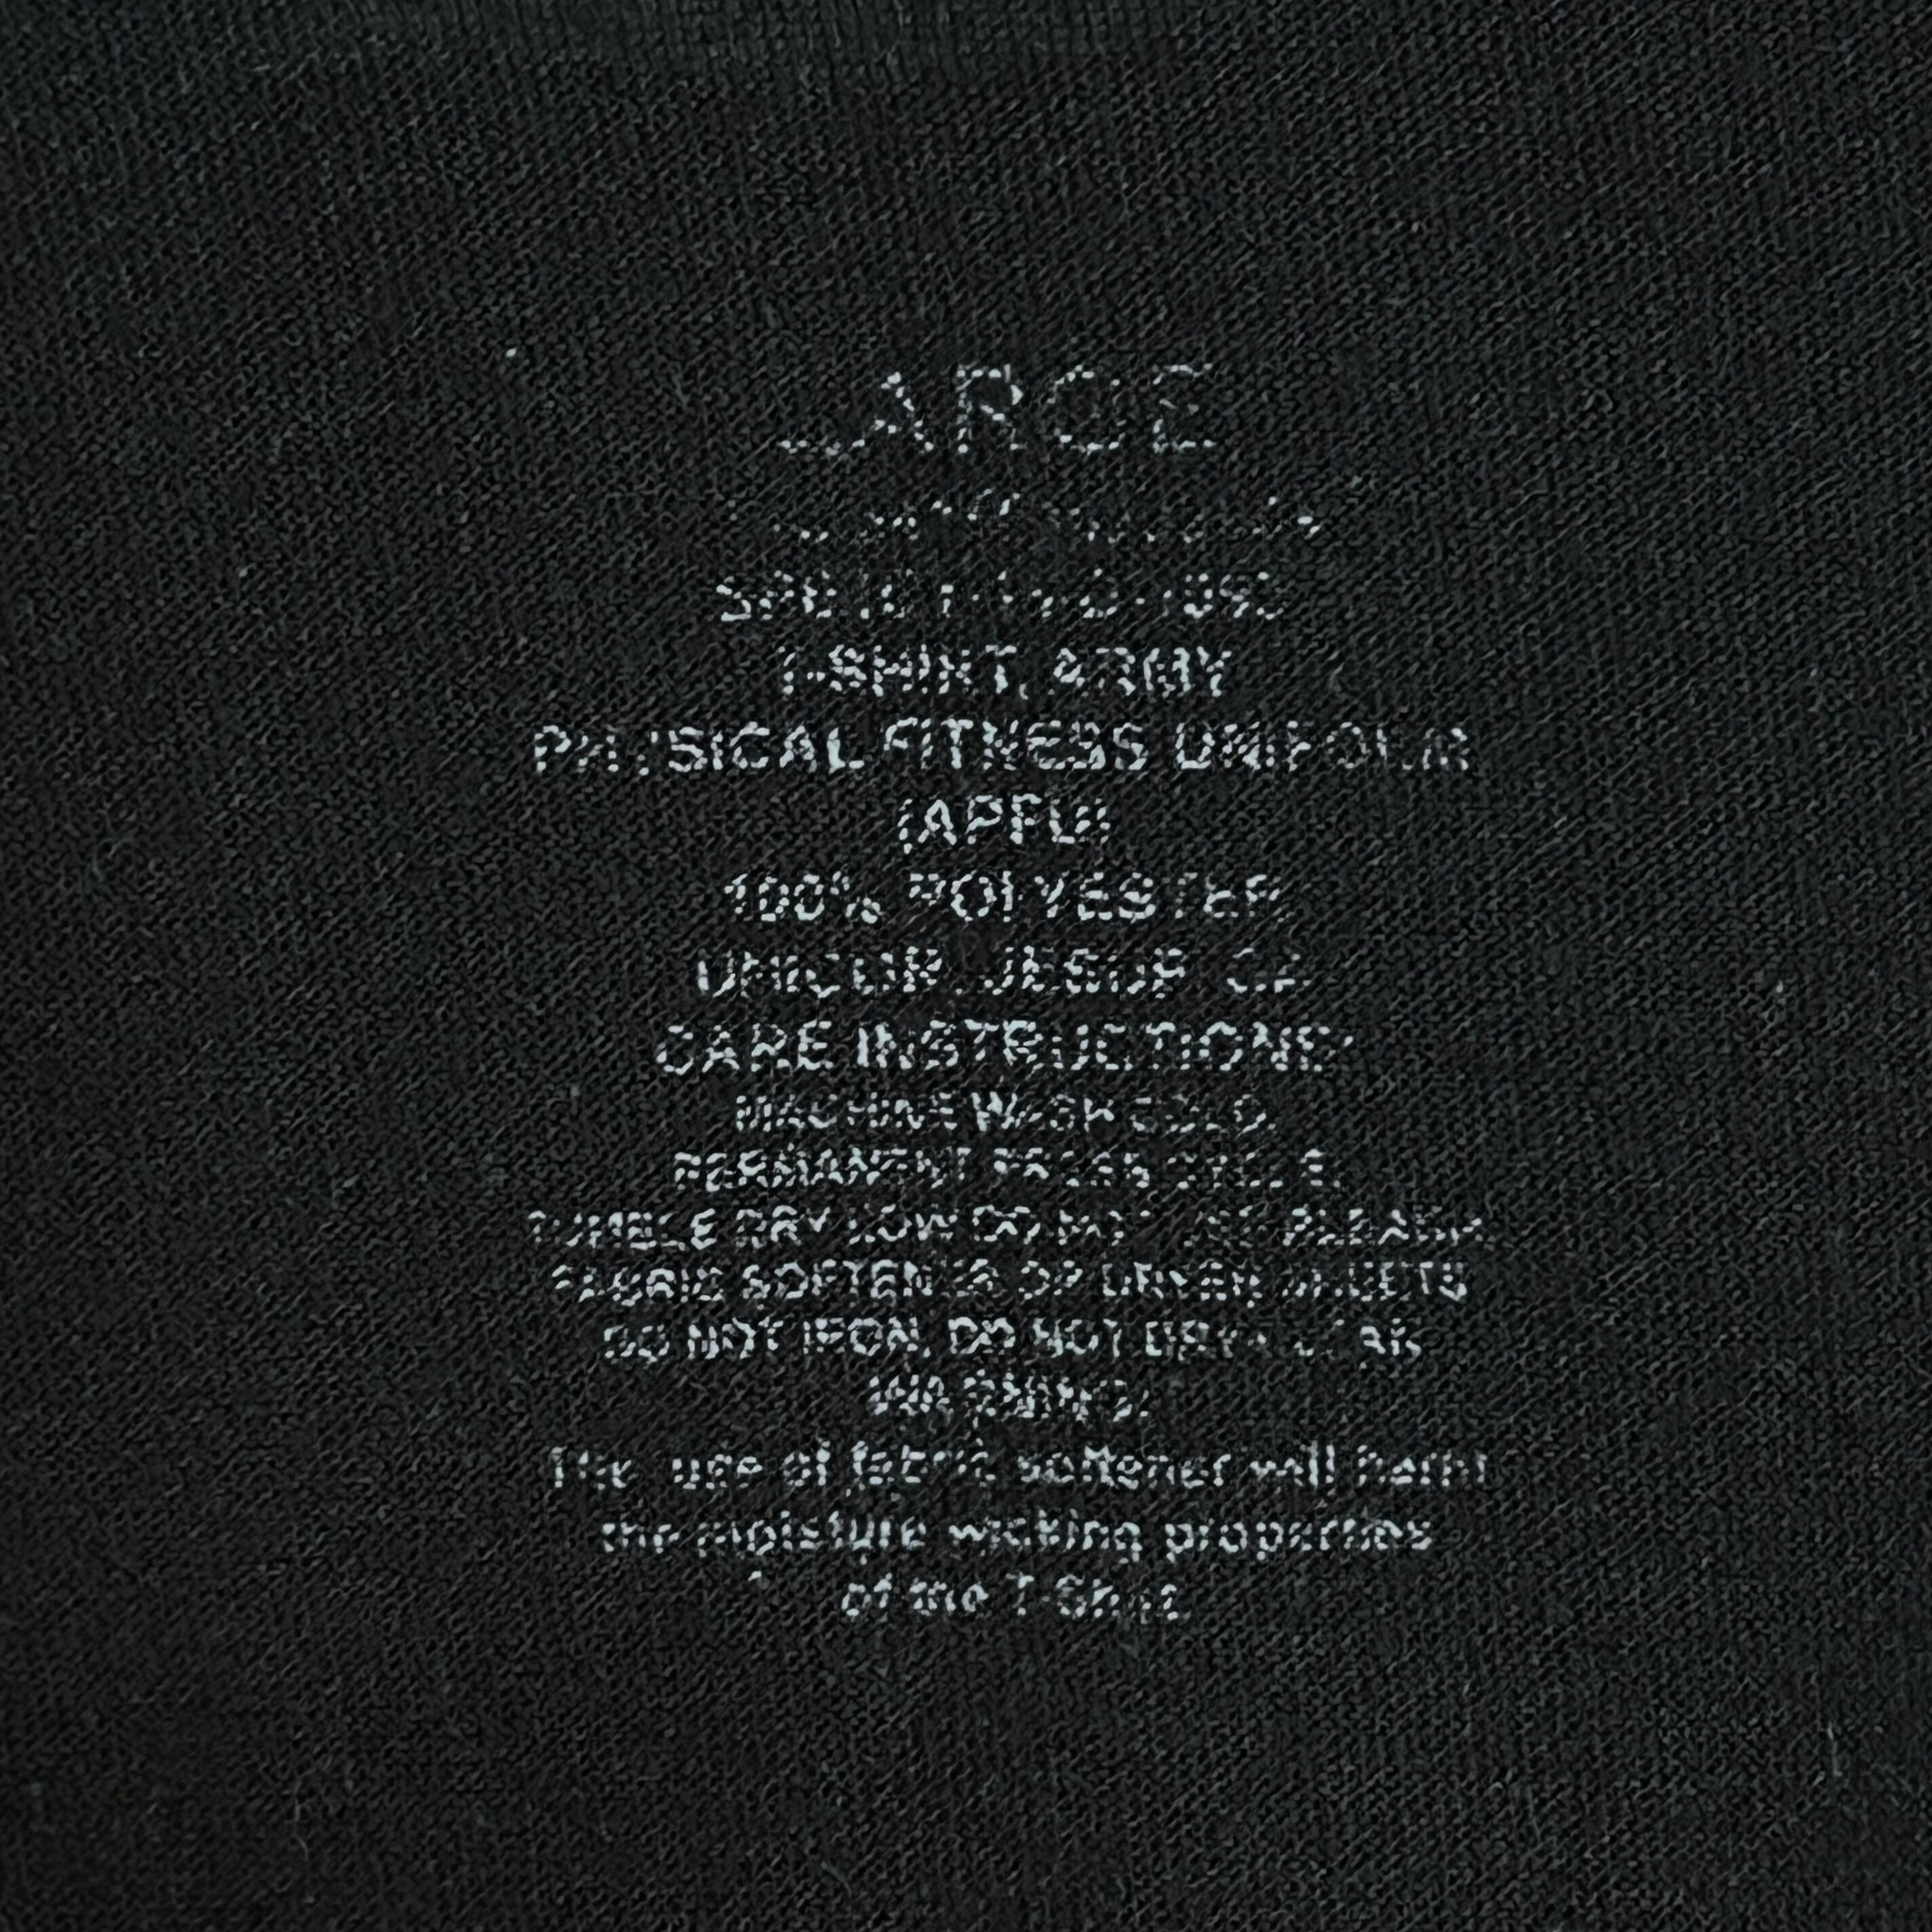 LARGE
T-SHIRT, ARMY
PHYSICAL FITNESS UNIFORM
(APFU)
100% POLYESTER
UNICOR, JESUP, GA
CARE INSTRUCTIONS:
MACHINE WASH COLD,
PERMANENT PRESS CYCLE.
TUMBLE DRY LOW DO NOT USE BLEACH,
FABRIC SOFTENER OR DRYER SHEETS
DO NOT IRON. DO NOT DRY CLEAN
WARNING:
The use of fabric softener will harm
the moisture wicking properties
of the T-Shirt.